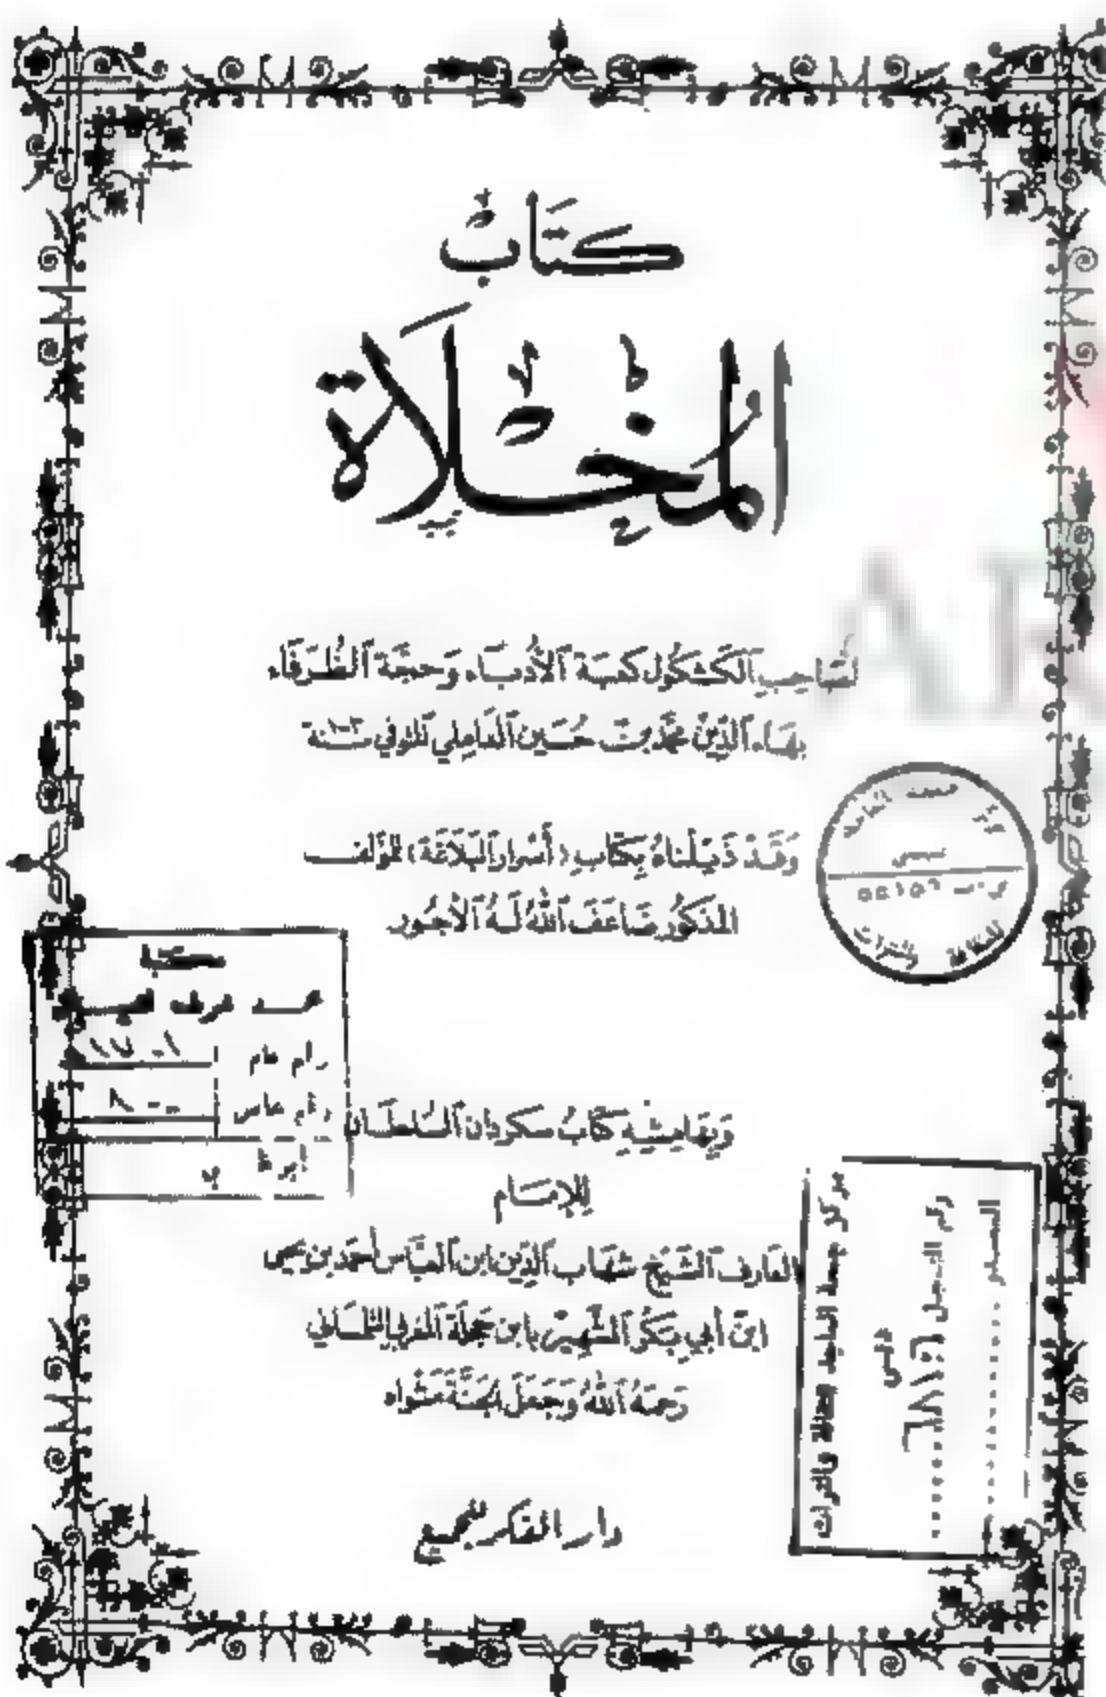 كتاب
المخلاة
لصاحب الكشكول كعبة الأدباء وحجة الظرفاء
بهاء الدين محمد بن حسين العاملي المتوفي سنة
وقد ذيلناه بكتاب (أسرار البلاغة) للمؤلف
المذكور ضاعف الله له الأجور
وبهامشه كتاب سكردان السلطان
للإمام
العارف الشيخ شهاب الدين ابن العباس أحمد بن يحيى
ابن أبي بكر الشهير بابن حجلة المغربي التلمساني
رحمه الله وجعل الجنة مثواه
دار الفكر للجميع
جمعة الماجد
دبي
ص.ب ٥٥١٥٦
للثقافة والتراث
محمد
رقم عام
رقم خاص
مركز جمعة الماجد للثقافة والتراث
دبي
رقم التسجيل